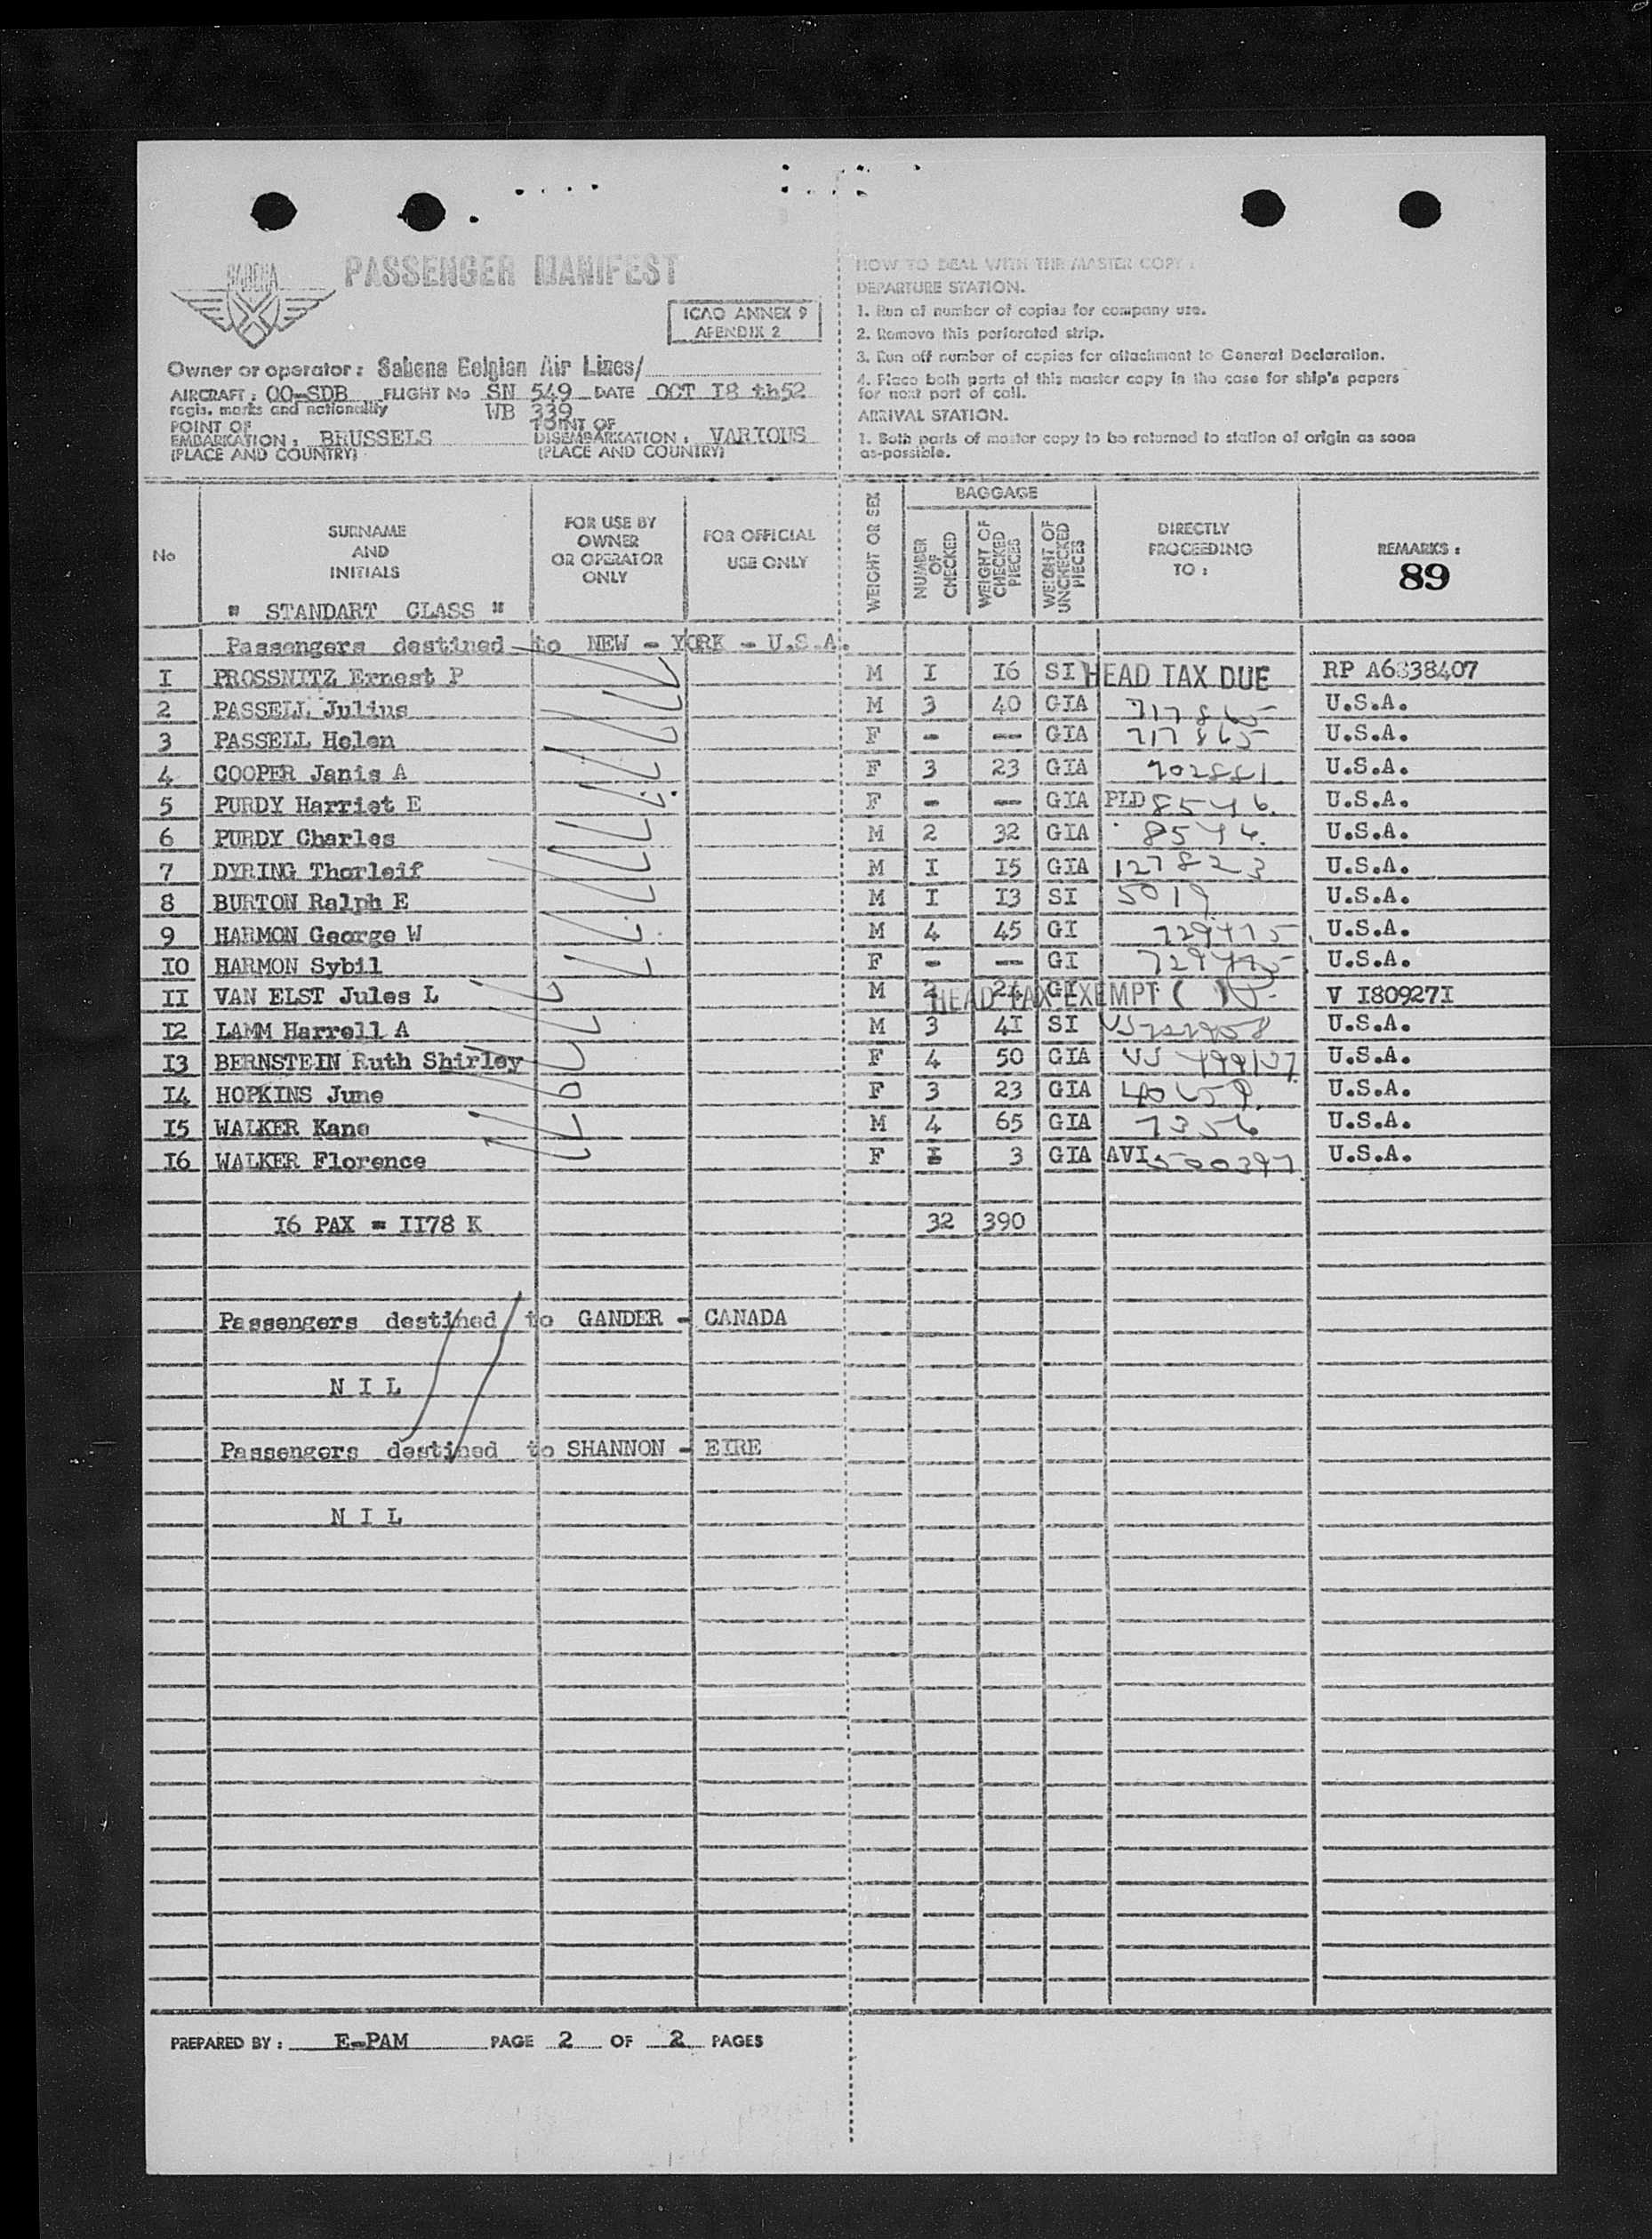 SABENA
PASSENGER MANIFEST
ICAO ANNEX 9
APENDIX 2
Owner or operator : Sabena Belgian Air Lines/
AIRCRAFT : OO-SDB FLIGHT No SN 549 DATE OCT I8 th52
regis. marks and nationality WB 339
POINT OF EMBARKATION : BRUSSELS POINT OF DISEMBARKATION : VARIOUS
(PLACE AND COUNTRY) (PLACE AND COUNTRY)
HOW TO DEAL WITH THE MASTER COPY :
DEPARTURE STATION.
1. Run of number of copies for company use.
2. Remove this perforated strip.
3. Run off number of copies for attachment to General Declaration.
4. Place both parts of this master copy in the case for ship's papers
for next port of call.
ARRIVAL STATION.
1. Both parts of master copy to be returned to station of origin as soon
as-possible.
No SURNAME AND INITIALS FOR USE BY OWNER OR OPERATOR ONLY FOR OFFICIAL USE ONLY WEIGHT OR SEX BAGGAGE NUMBER OF CHECKED WEIGHT OF CHECKED PIECES WEIGHT OF UNCHECKED PIECES DIRECTLY PROCEEDING TO : REMARKS :
89
" STANDART CLASS "
Passengers destined to NEW - YORK - U.S.A.
I PROSSNITZ Ernest P M I I6 SI HEAD TAX DUE RP A6838407
2 PASSELL Julius M 3 40 GIA 717865 U.S.A.
3 PASSELL Helen F - -- GIA 717865 U.S.A.
4 COOPER Janis A F 3 23 GIA 702881 U.S.A.
5 PURDY Harriet E F - -- GIA PLD 8546. U.S.A.
6 PURDY Charles M 2 32 GIA 8546. U.S.A.
7 DYRING Thorleif M I I5 GIA 127823 U.S.A.
8 BURTON Ralph E M I I3 SI 5019 U.S.A.
9 HARMON George W M 4 45 GI 729475 U.S.A.
I0 HARMON Sybil F - -- GI 729475 U.S.A.
II VAN ELST Jules L M 2 24 GI HEAD TAX EXEMPT ( ) V I80927I
I2 LAMM Harrell A M 3 4I SI U.S.A.
I3 BERNSTEIN Ruth Shirley F 4 50 GIA U.S.A.
I4 HOPKINS June F 3 23 GIA U.S.A.
I5 WALKER Kane M 4 65 GIA 7356 U.S.A.
I6 WALKER Florence F I 3 GIA AVI 500397 U.S.A.
I6 PAX = II78 K 32 390
Passengers destined to GANDER - CANADA
N I L
Passengers destined to SHANNON - EIRE
N I L
PREPARED BY : E-PAM PAGE 2 OF 2 PAGES